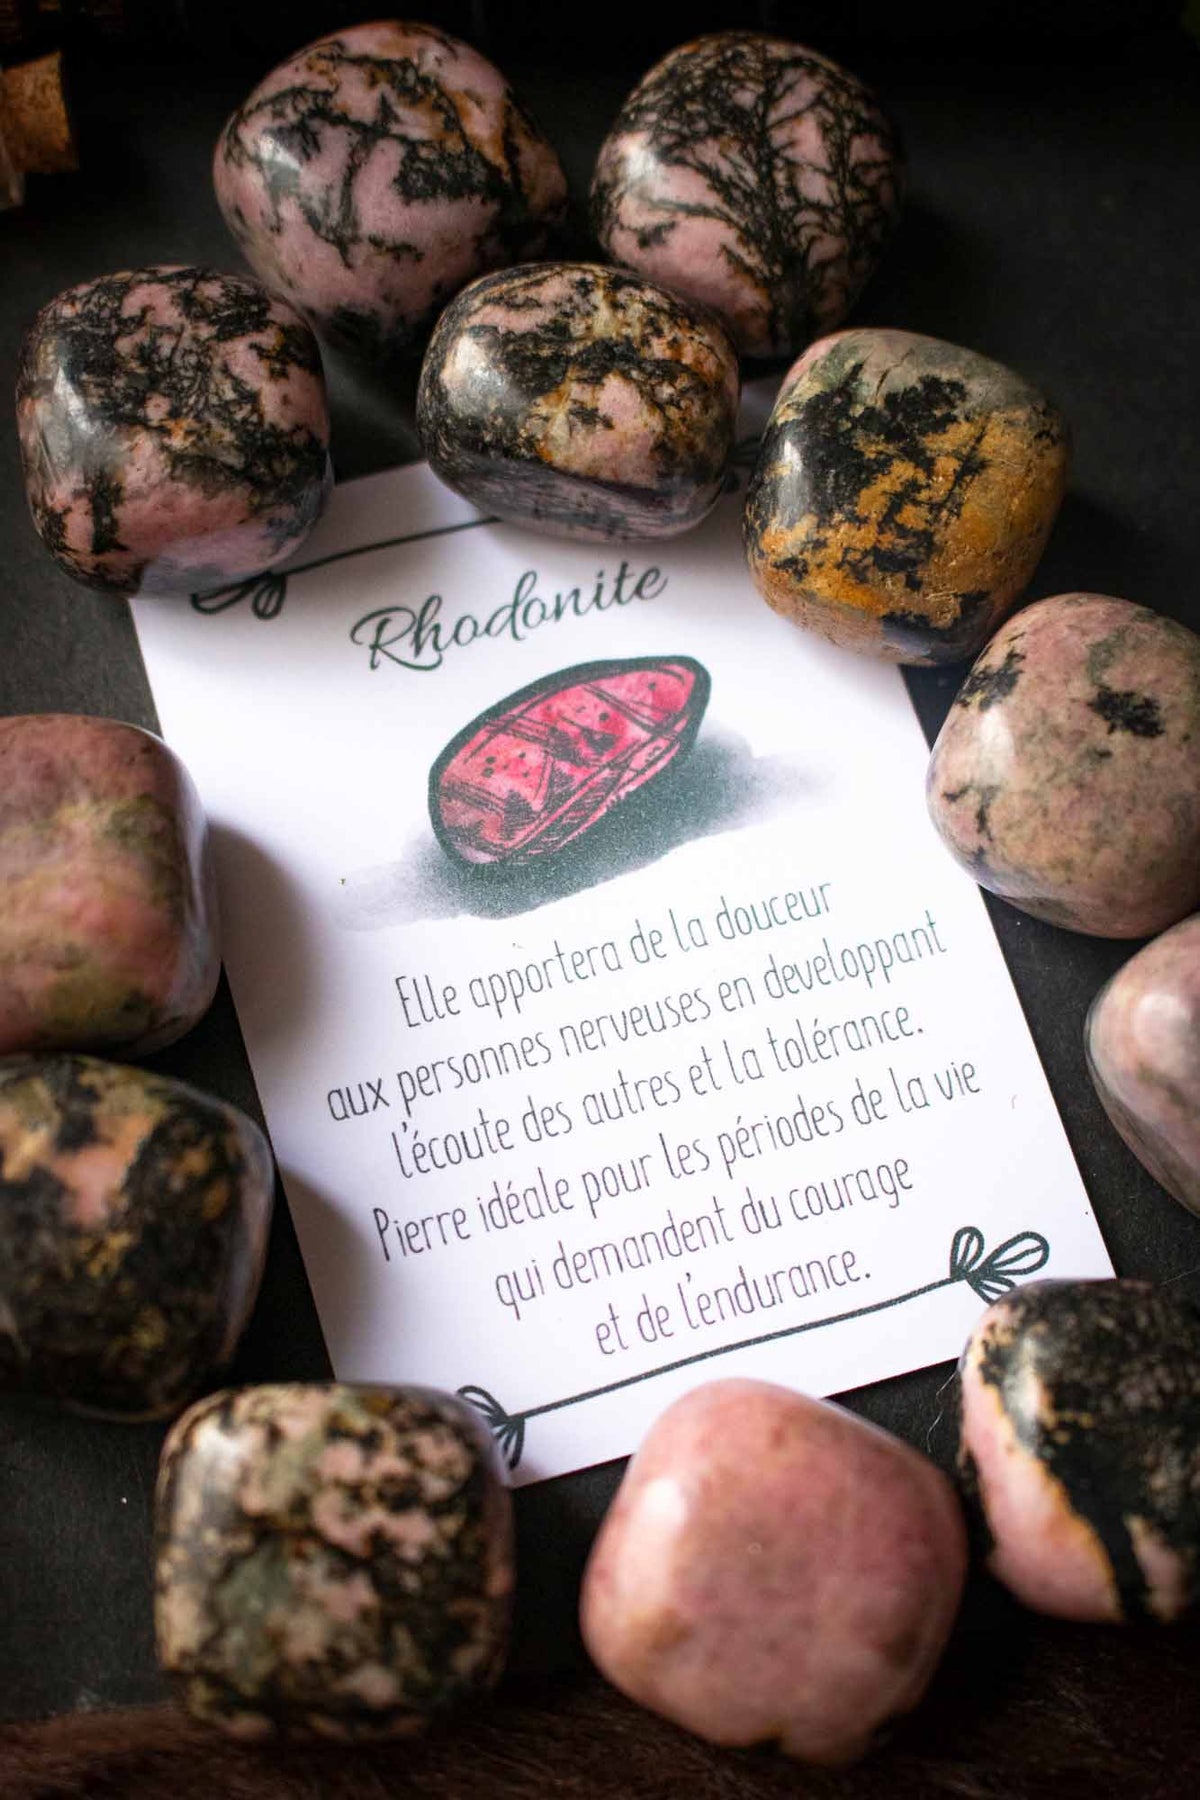 Rhodonite
Elle apportera de la douceur
aux personnes nerveuses en developpant
l'écoute des autres et la tolérance.
Pierre idéale pour les périodes de la vie
qui demandent du courage
et de l'endurance.